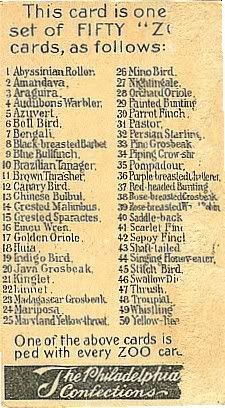 This card is one
set of FIFTY "Z
cards, as follows:
1 Abyssinian Roller.
2 Amandava.
3 Araguira.
4 Audubons Warbler.
5 Azuvert.
6 Bell Bird.
7 Bengali.
8 Black-breasted Barbet
9 Blue Bullfinch.
10 Brazilian Tanager.
11 Brown Thrasher.
12 Canary Bird.
13 Chinese Bulbul.
14 Crested Malimbus.
15 Crested Sparactes.
16 Emeu Wren.
17 Golden Oriole.
18 Huia.
19 Indigo Bird.
20 Java Grosbeak.
21 Kinglet.
22 Linnet.
23 Madagascar Grosbeak.
24 Mariposa.
25 Maryland Yellow-throat.
26 Mino Bird.
27 Nightingale.
28 Orchard Oriole.
29 Painted Bunting
30 Parrot Finch.
31 Pastor.
32 Persian Starling.
33 Pine Grosbeak.
34 Piping Crow-shr
35 Pompadour.
36 Purple-breasted
37 Red-headed Bunting
38 Rose-breasted Grosbeak.
39 Rose-breasted
40 Saddle-back
41 Scarlet Fin
42 Sepoy Finc
43 Shaft-tailed
44 Singing Honey-eater,
45 Stitch Bird.
46 Swallow Di
47 Thrush.
48 Troupial.
49 Whistling
50 Yellow-
One of the above cards is
ped with every ZOO car
The Philadelphia
Confections.